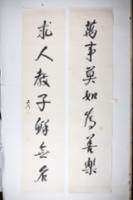 萬事莫如為善樂
求人教子鮮無居